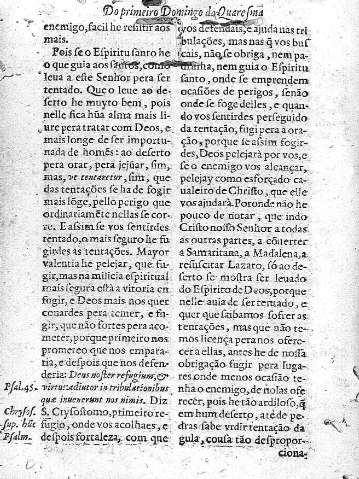 Do primeiro Domingo da Quaresma
enemigo, facil he resistir aos
mais.
Pois se o Espiritu santo he
o que guia aos santos, como
leua a este Senhor pera ser
tentado. Que o leue ao de-
serto he muyto bem, pois
nelle fica hũa alma mais li
ure pera tratar com Deos, e
mais longe de ser importu-
nada de homẽs: ao deserto
pera orar, pera jejũar, sim,
mas, vt tentaretur, sint, que
das tentações se ha de fugir
mais lõge, pello perigo que
ordinariamẽte nellas se cor-
re. E assim se vos sentirdes
tentado, o mais seguro he fu
girdes as tentações. Mayor
valentia he pelejar, que fu-
gir, mas na milicia espiritual
mais segura està a vitoria em
fugir, e Deos mais nos quer
couardes pera temer, e fu-
gir, que não fortes pera aco-
meter, porque primeiro nos
prometeo que nos empara-
ria, e despois que nos defen-
deria: Deus noster refugium, &
virtus: adiutor in tribulationibus
que inuenerunt nos nimis. Diz
S. Crysostomo, primeiro re-
fugio, onde vos acolhaes, e
despois fortaleza, com que
Psal. 45.
Chrysos.
sup. hũc
Psalm.
vos defendais, e ajuda nas tri
bulações, mas nas q̃ vos bus
cais, não se obriga, nem pa-
minha, nem guia o Espiritu
santo, onde se emprendem
ocasiões de perigos, senão
onde se foge delles, e quan-
do vos sentirdes perseguido
da tentação, fugi pera a ora-
ção, porque se assim fogir-
des, Deos pelejarà por vos, e
se o enemigo vos alcançar,
pelejay como esforçado ca-
ualeiro de Christo, que elle
vos ajudarà. Poronde não he
pouco de notar, que indo
Cristo nosso Senhor a todas
as outras partes, a cõuerter
a Samaritana, a Madalena, a
resuscitar Lazaro, sò ao de-
serto se mostra ser leuado
do Espirito de Deos, porque
nelle auia de ser tentado, e
quer que saibamos sofrer as
tentações, mas que não te-
mos licença pera nos ofere-
cer a ellas, antes he de nossa
obrigação fugir pera luga-
res onde menos ocasião te-
nha o enemigo, de nolas ofe
recer, pois he tão ardiloso, q̃
em hum deserto, atè de pe-
dras sabe vrdir tentação da
gula, cousa tão despropor-
ciona-